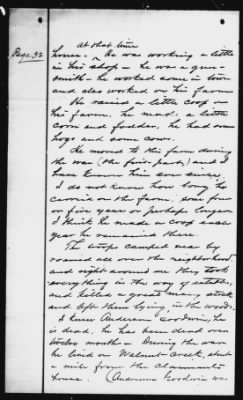 Page 32
At that time
house. He was working a little
in his shop - he was a gun-
smith - he worked some in town
and also worked on his farm
He raised a little crop on
his farm, he made a little
corn and fodder, he had some
hogs and some cows.
He moved to this farm during
the war (the first part) and I
have known him ever since.
I do not know how long he
carried on the farm, some four
or five year or perhaps longer
I think he made a crop each
year he remained there.
The troops camped near by
roamed all over the neighborhood
and right around me they took
everything in the way of cattle,
and killed a great many, stock
and left them lying in the woods.
I knew Anderson Goodwin, he
is dead, he has been dead over
twelve months - During the war
he lived on Walnut Creek, about
a mile from the Claimants
house. (Anderson Goodwin was